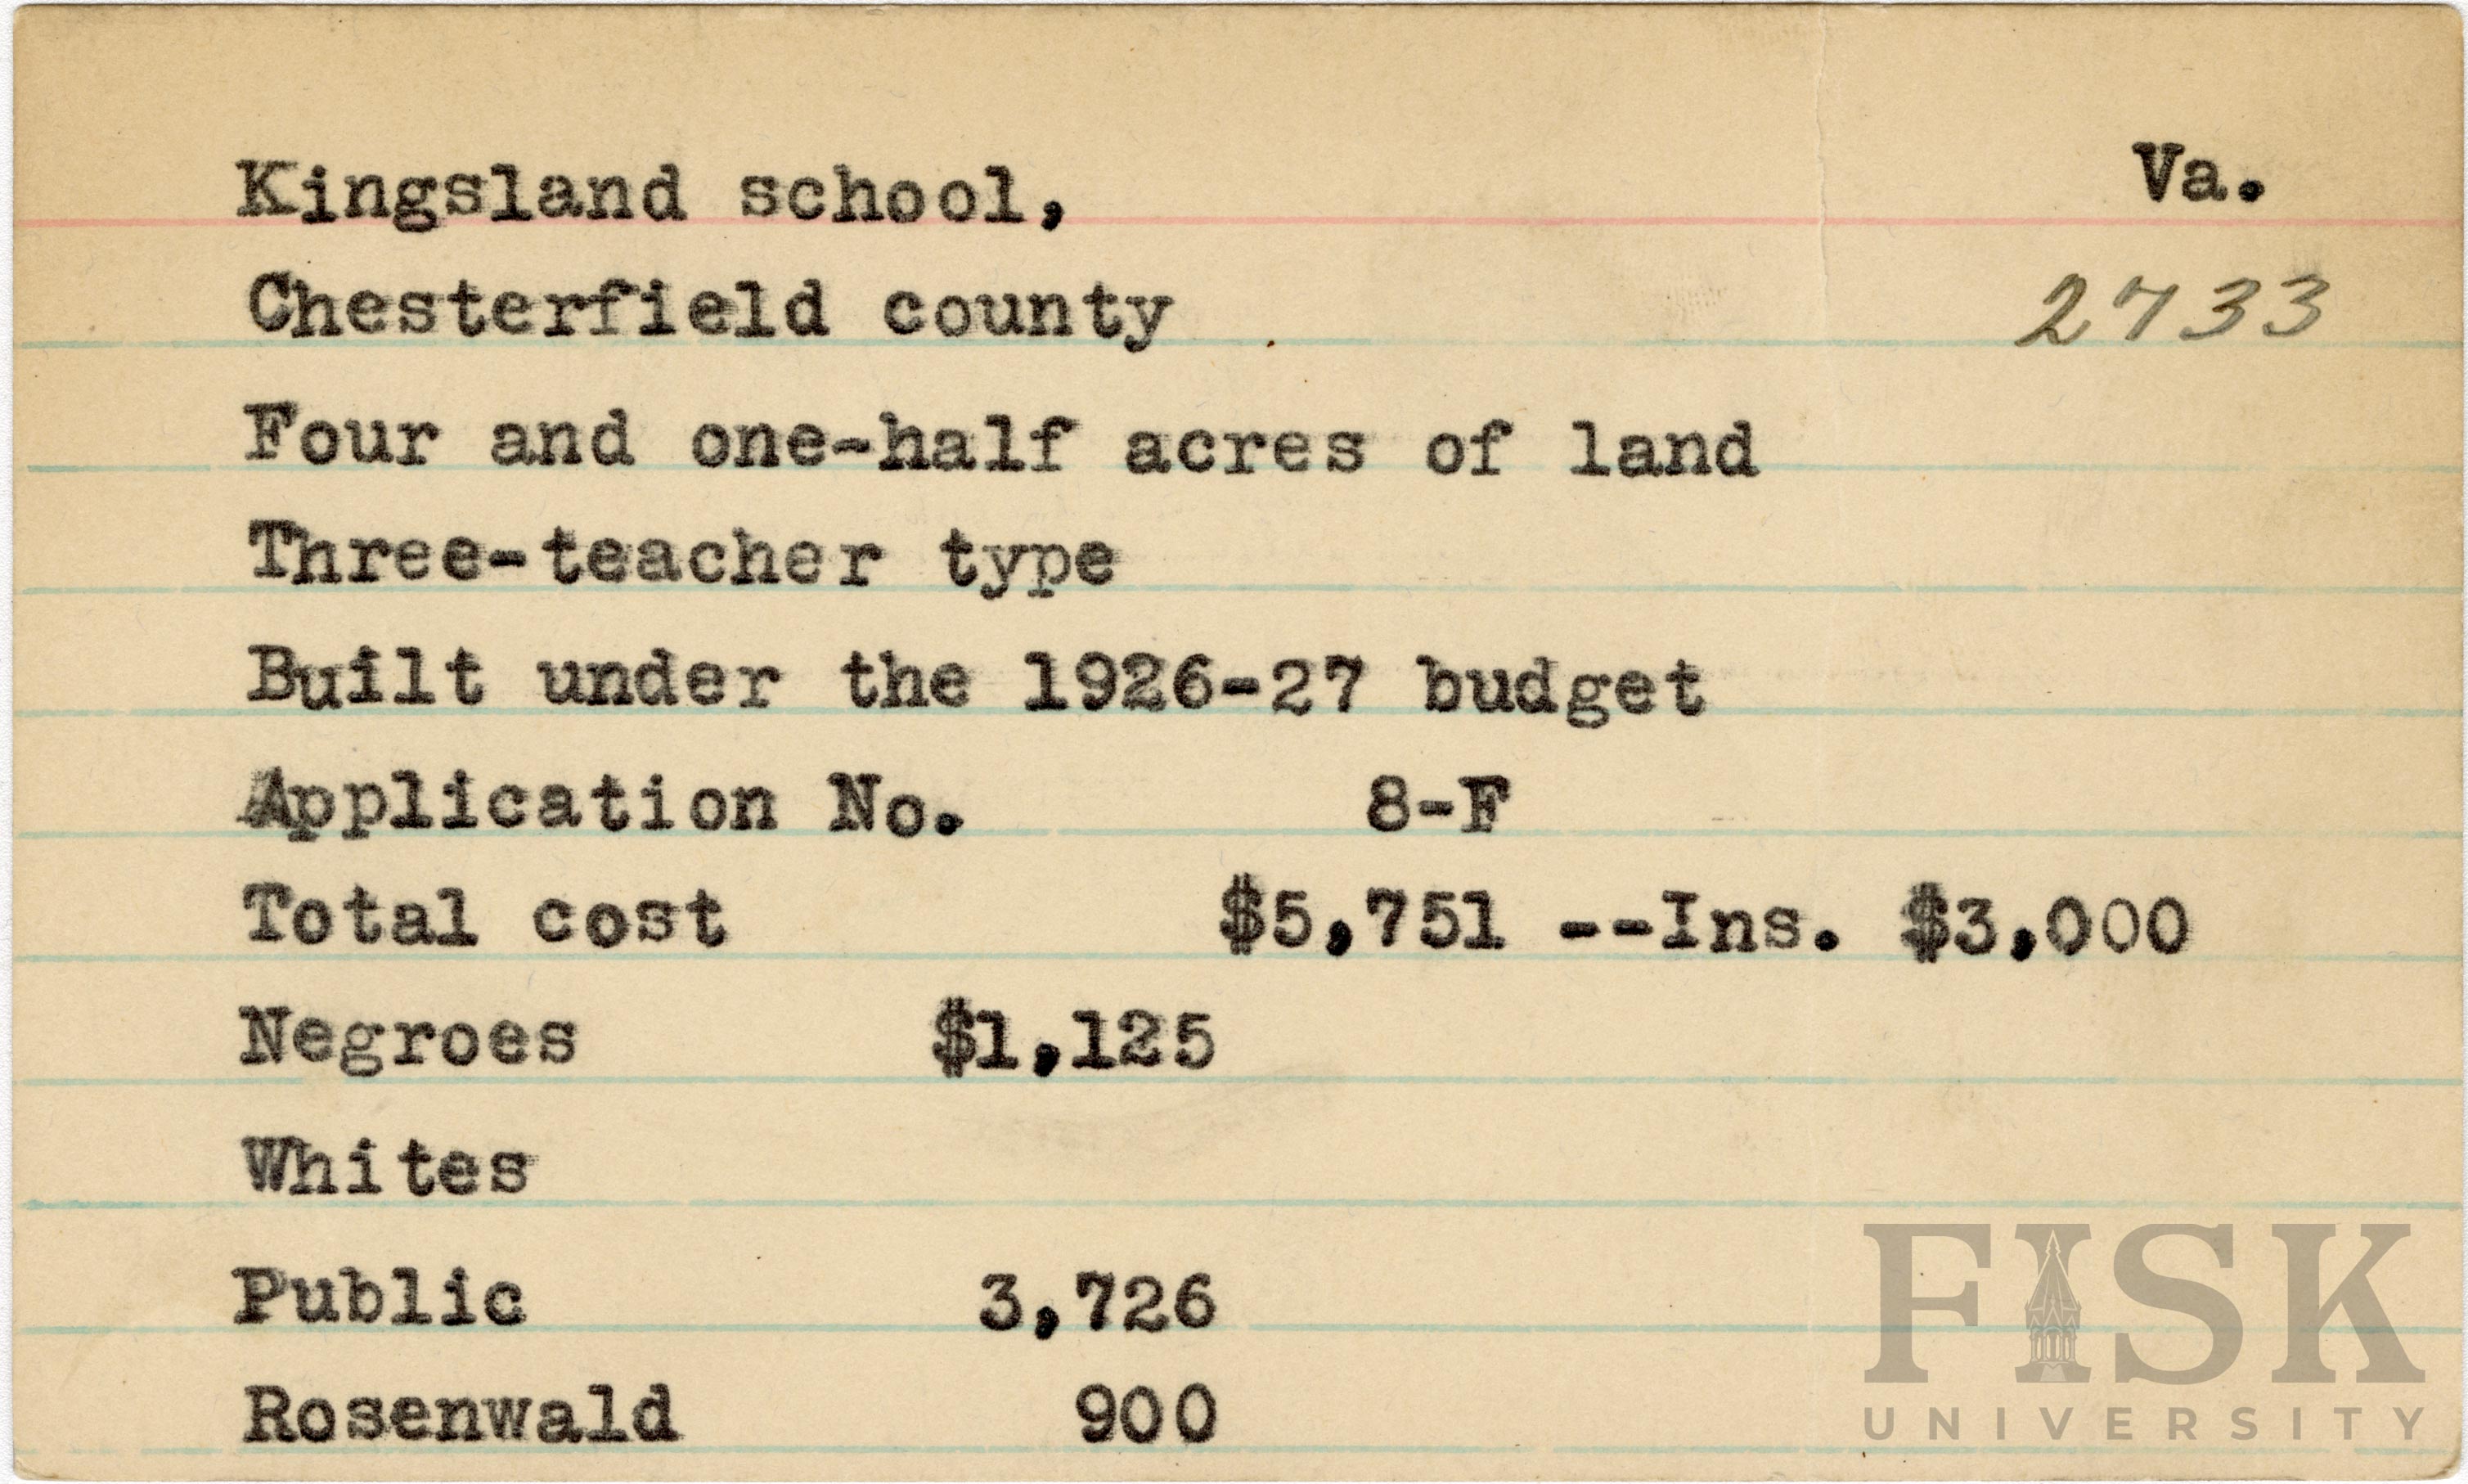 Kingsland school, Va.
Chesterfield county 2733
Four and one-half acres of land
Three-teacher type
Built under the 1926-27 budget
Application No. 8-F
Total cost $5,751 --Ins. $3,000
Negroes $1,125
Whites
Public 3,726
Rosenwald 900
FISK
UNIVERSITY